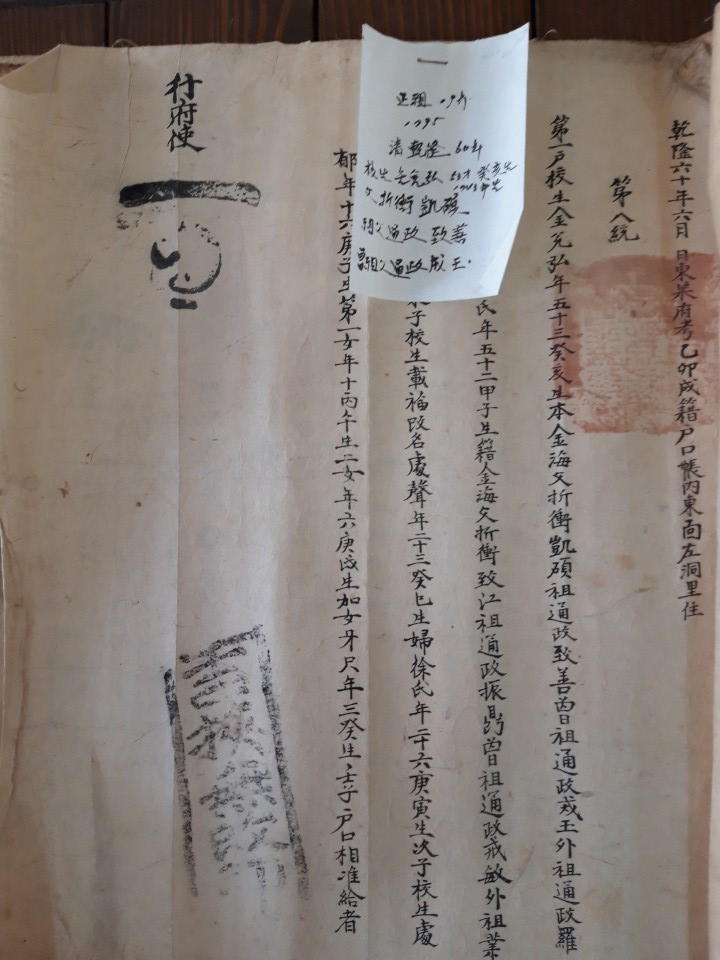 乾隆六十年六月 日東萊府考乙卯成籍戶口帳內東面左洞里住
第八統
第一戶校生金兌弘年五十三癸亥生本金海父折衝凱碩祖通政致善曾祖通政成王外祖通政羅
氏年五十二甲子生籍金海父折衝致江祖通政振昂曾祖通政戒敏外祖業
子校生載福改名處聲年二十三癸巳生婦徐氏年二十六庚寅生次子校生處
郁年十六庚子生第一女年十丙午生二女年六庚戌生加女牙尺年三癸生壬子戶口相準給者
行府使
正祖 19年
1795
清乾隆 60年
校生 金兌弘 53才 癸亥生
父 折衝 凱碩
祖父 通政 致善
曾祖父 通政 成王.